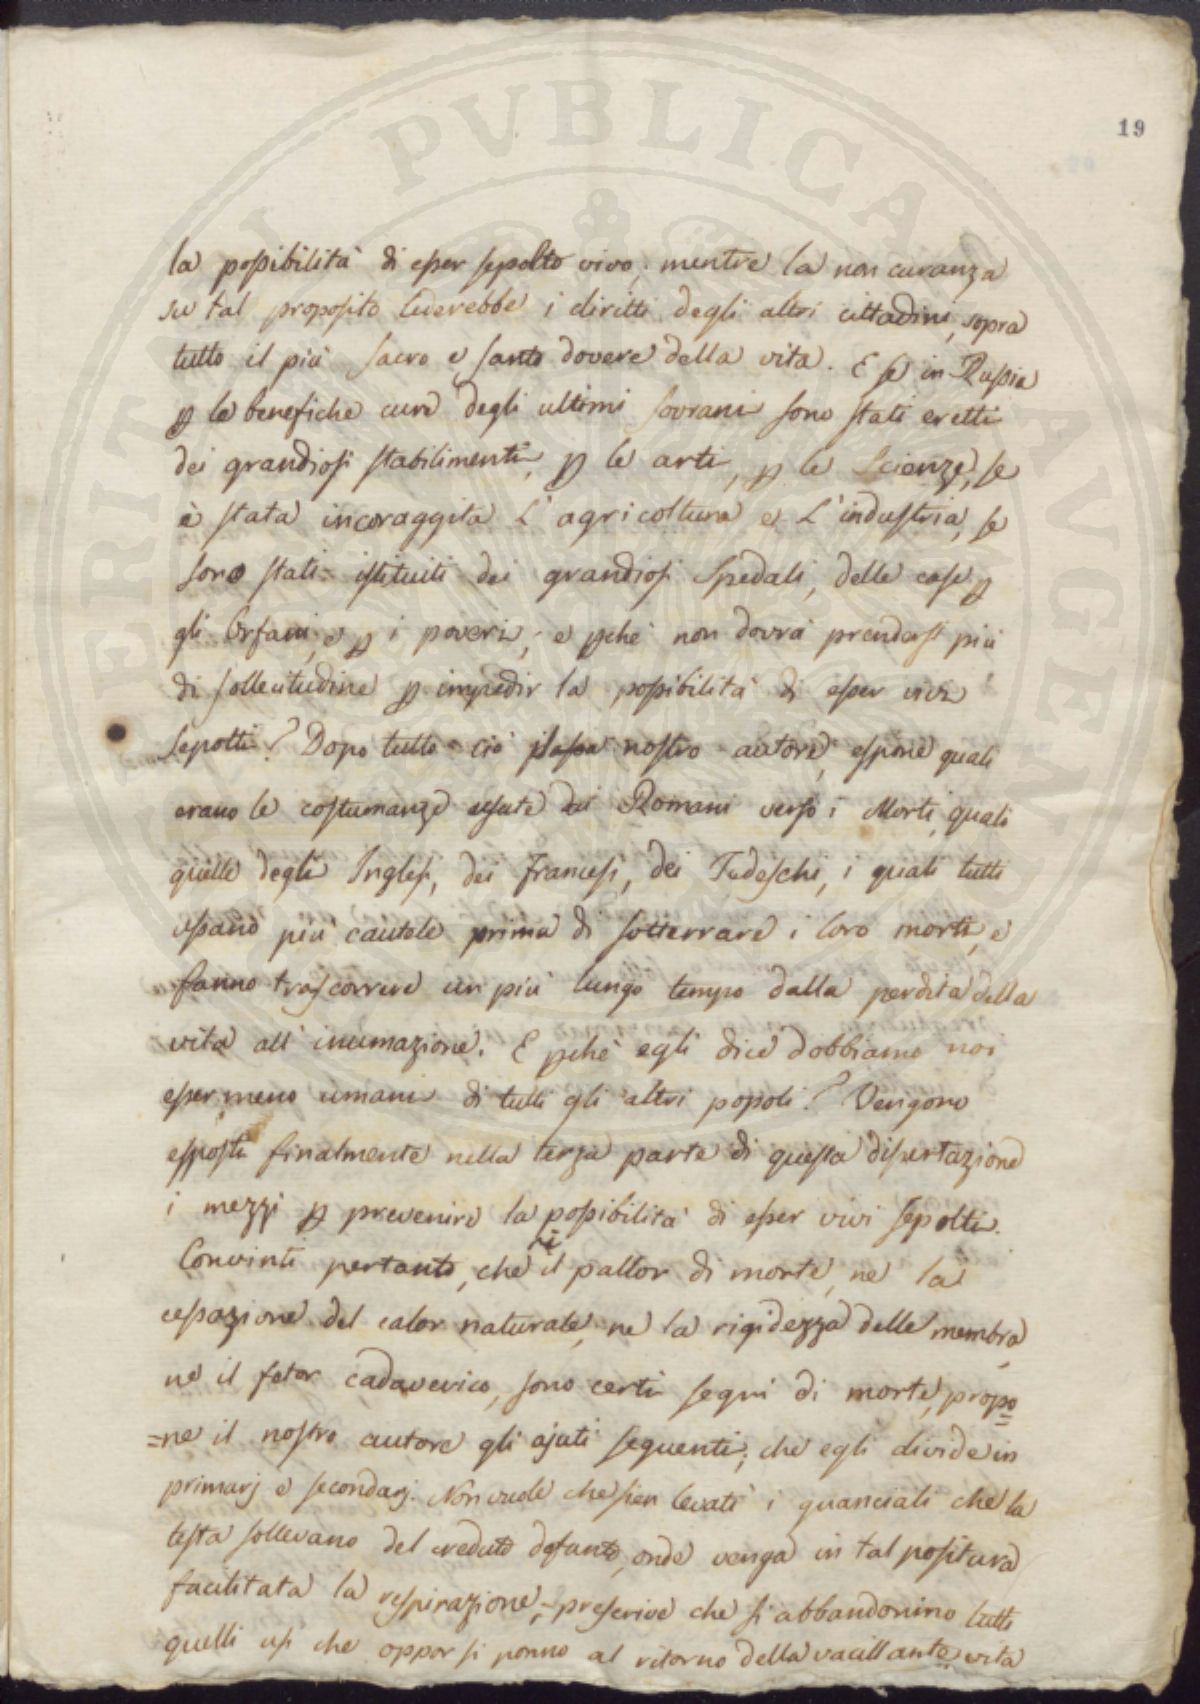 19
la possibilità di esser sepolto vivo; mentre la non curanza
su tal proposito lederebbe i diritti degli altri cittadini, sopra
tutto il più sacro e santo dovere della vita. E se in Russia
p le benefiche cure degli ultimi sovrani sono stati eretti
dei grandiosi stabilimenti, p le arti, p le Scienze, se
è stata incoraggita L'agricoltura e L'industria, se
sono stati istituiti dei grandiosi Spedali, delle case p
gli Orfani, e p i poveri; e pchè non dovrà prendersi più
di sollecitudine p impedir la possibilità di esser vivi
sepolti? Dopo tutto ciò nostro autore, espone quali
erano le costumanze usate dai Romani verso i Morti, quali
quelle degli Inglesi, dei Francesi, dei Tedeschi, i quali tutti
usano più cautele prima di sotterrare i loro morti, e
fanno trascorrere un più lungo tempo dalla perdita della
vita all'inumazione. E pchè egli dice dobbiamo noi
esser meno umani di tutti gli altri popoli? Vengono
esposti finalmente nella terza parte di questa disertazione
i mezzi p prevenire la possibilità di esser vivi sepolti.
Convinti pertanto, che nè il pallor di morte, nè la
cessazione del calor naturale, nè la rigidezza delle membra,
nè il fetor cadaverico, sono certi segni di morte, propo=
=ne il nostro autore gli ajuti seguenti; che egli divide in
primarj e secondarj. Non vuole che sien levati i guanciali che la
testa sollevano del creduto defunto, onde venga in tal positura
facilitata la respirazione; prescrive che si abbandonino tutti
quelli usi che opporsi ponno al ritorno della vacillante vita
PUBLICA
VERITAS
AVGENDA